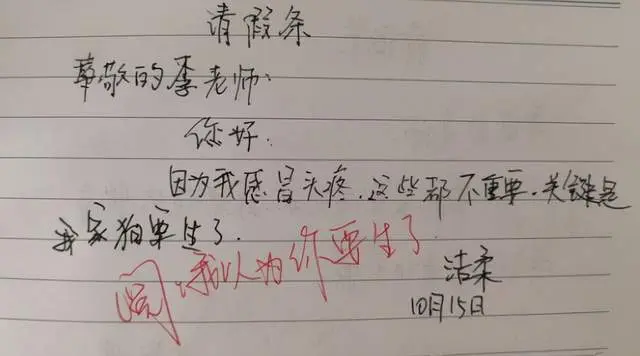 请假条
尊敬的李老师:
你好:
因为我感冒头疼.这些都不重要.关键是
我家狗要生了.
阅,我以为你要生了
洁柔
10月15日